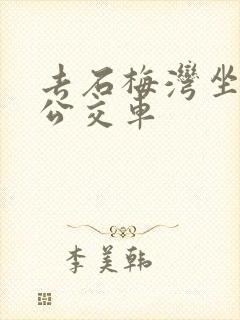 去石梅灣坐
公交車
李美韩